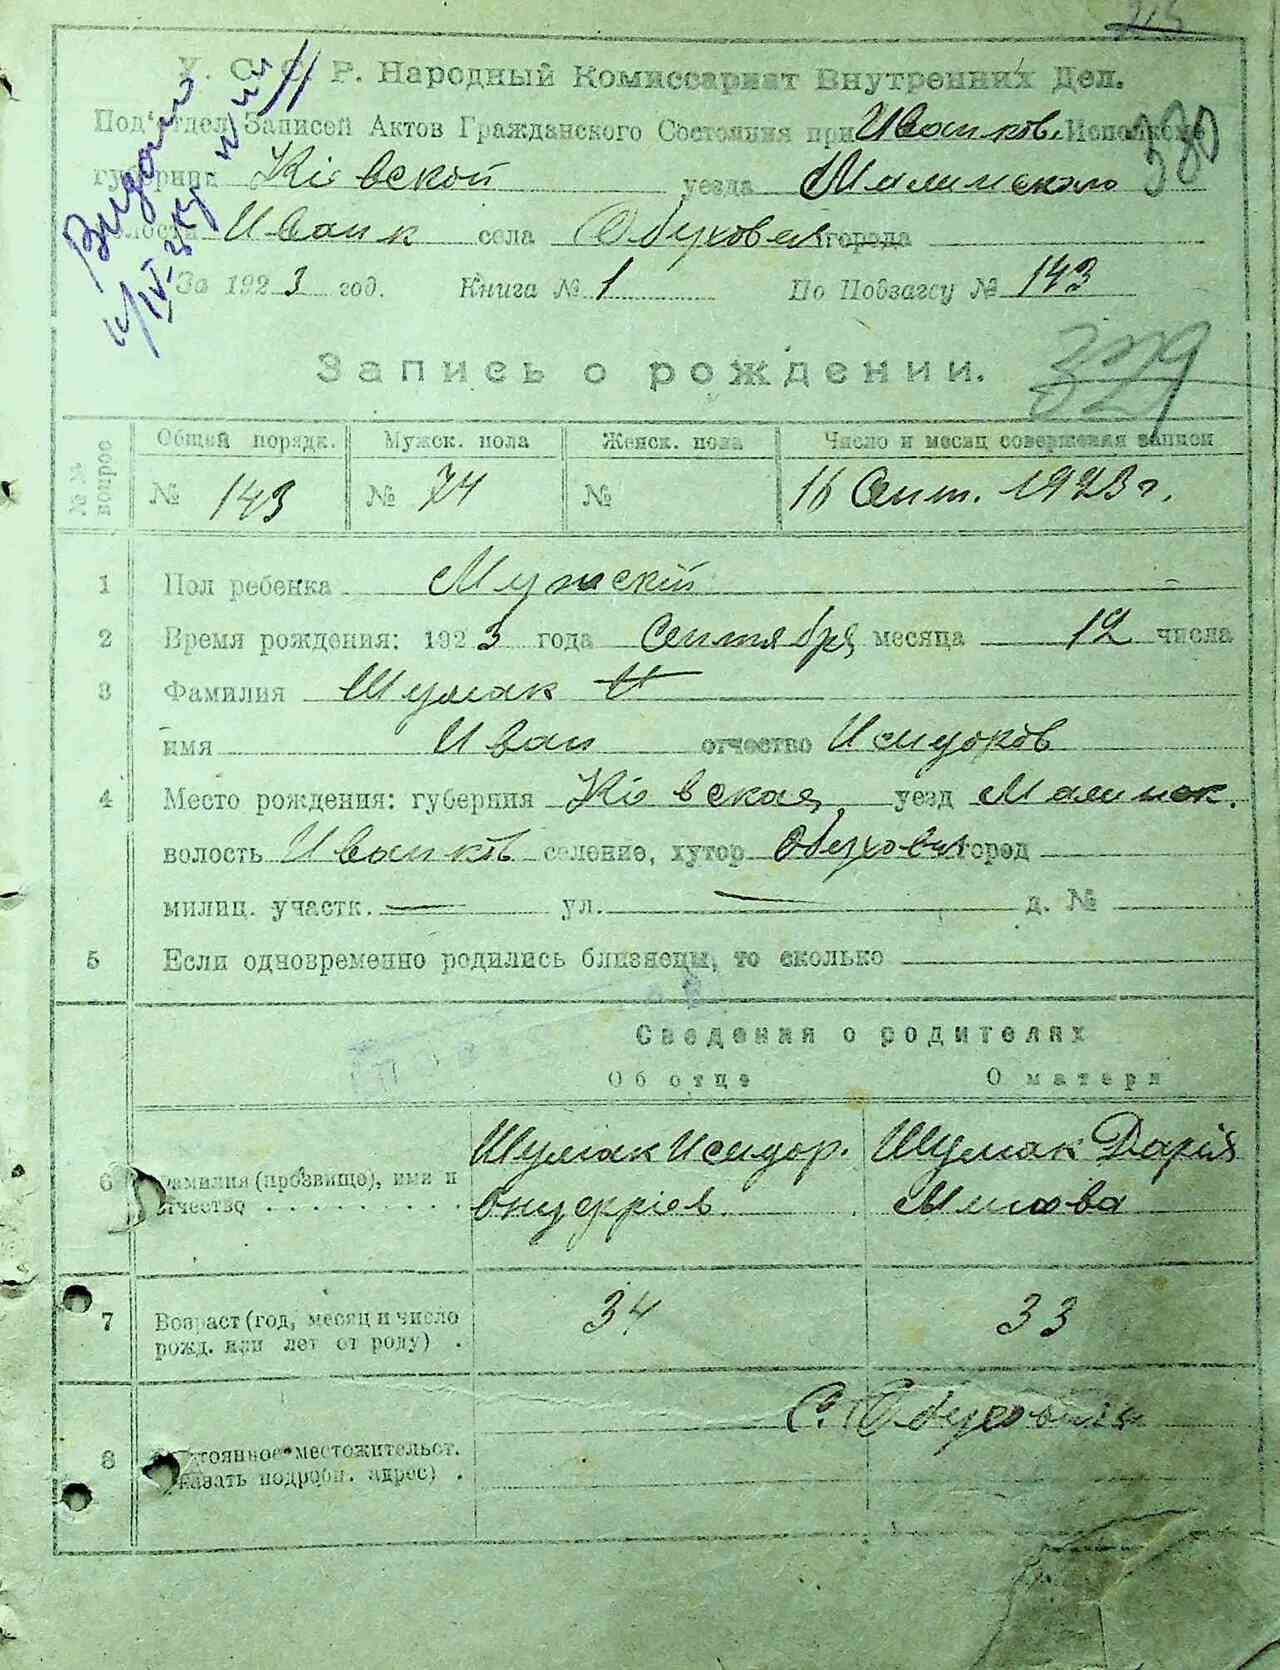 У. С. С. Р. Народный Комиссариат Внутренних Дел.
Под'отдел Записей Актов Гражданского Состояния при Иванков. Исполкоме
губернии Кіевской уезда Малинского
380
волости Иванк села Обуховичи города
За 1923 год. Книга № 1 По Подзагсу № 143
Запись о рождении.
329
№№ вопрос
Общий порядк. Мужск. пола Женск. пола Число и месяц совершения записи
№ 143 № 74 № 16 Сент. 1923 г.
1 Пол ребенка Мужскій
2 Время рождения: 1923 года Сентября месяца 12 числа
3 Фамилия Шумак
имя Иван отчество Исидоров
4 Место рождения: губерния Кіевская уезд Малинск.
волость Иванков селение, хутор Обуховичи город
милиц. участк. — ул. — д. №
5 Если одновременно родились близнецы, то сколько
Сведения о родителях
Об отце О матери
Шумак Исидор. Шумак Дарія
6 Фамилия (прозвище), имя и
отчество . . . . . . . . . Онуфріев.
7 Возраст (год, месяц и число 34 33
рожд. или лет от роду) .
С. Обуховичи
8 Постоянное местожительст.
(указать подробн. адрес) .